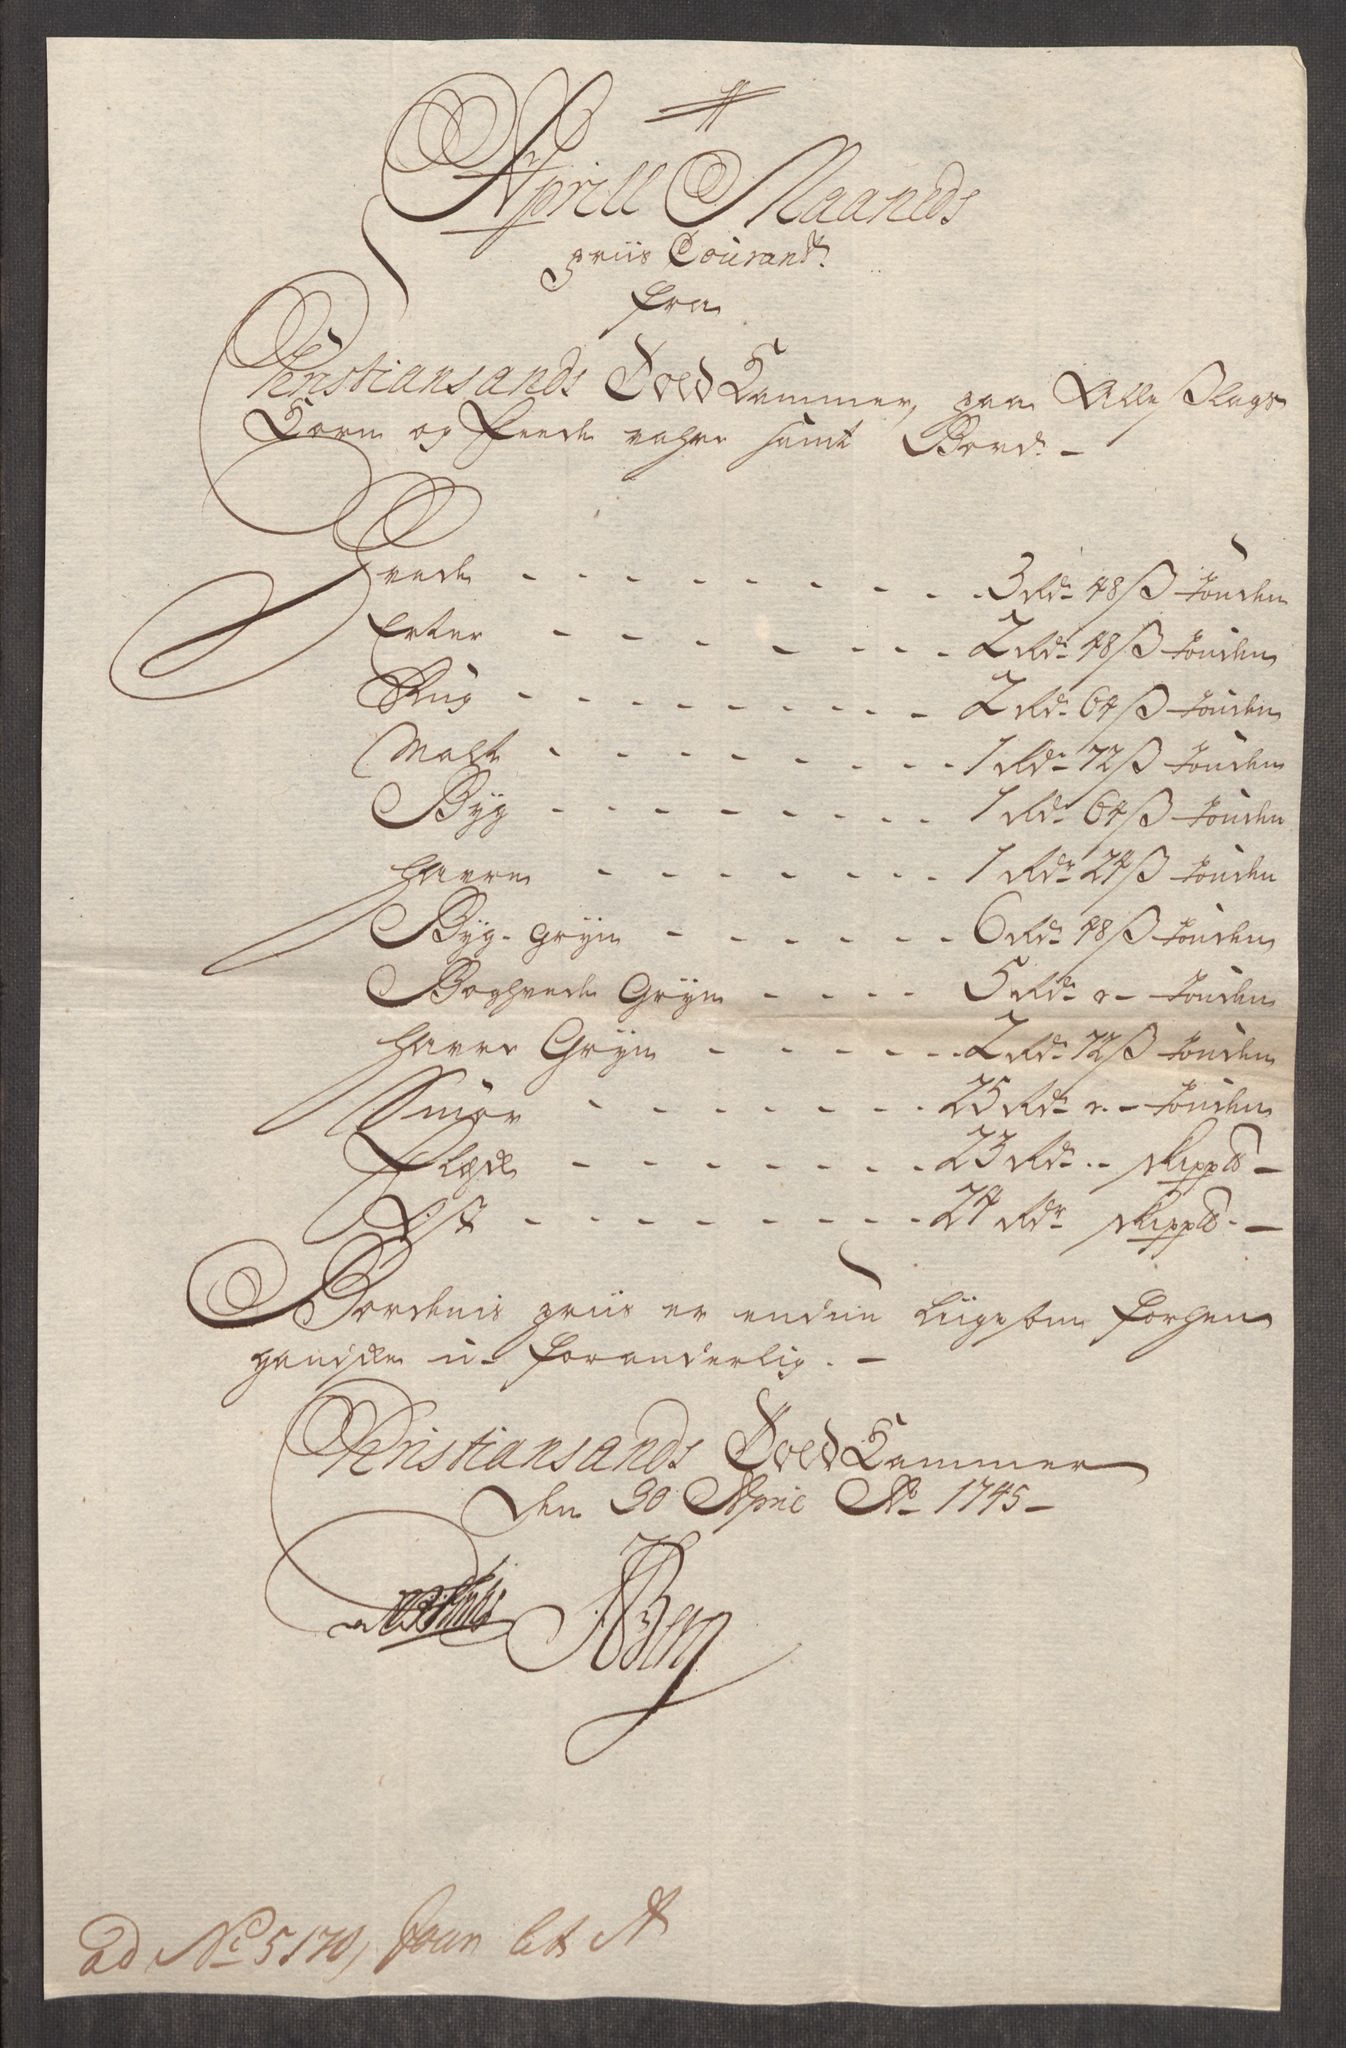 Aprill Maaneds
priis Courandt
fra
Christiansands Told Kammer, paa Alle Slags
Korn og feede vahre samt Bord. -
Hvede - - - 3 Rd. 48 ß Tønden
Erter - - - 2 Rd. 48 ß Tønden
Rug - - - 2 Rd. 64 ß Tønden
Malt - - - 1 Rd. 72 ß Tønden
Byg - - - 1 Rd. 64 ß Tønden
Havre - - - 1 Rd. 24 ß Tønden
Byg-Gryn - - - 6 Rd. 48 ß Tønden
Boghvede Gryn - - - 5 Rd. - Tønden
Havre Gryn - - - 2 Rd. 72 ß Tønden
Smør - - - 25 Rd. - Tønden
Flesk - - - 23 Rd. - skipp℔ -
Ost - - - 24 Rd. skipp℔ -
Bordenis priis er endnu liigesom forhen
u-foranderlig. -
Christiansands Told Kammer
den 30 April Ao 1745 -
ad No 5170, Lit A